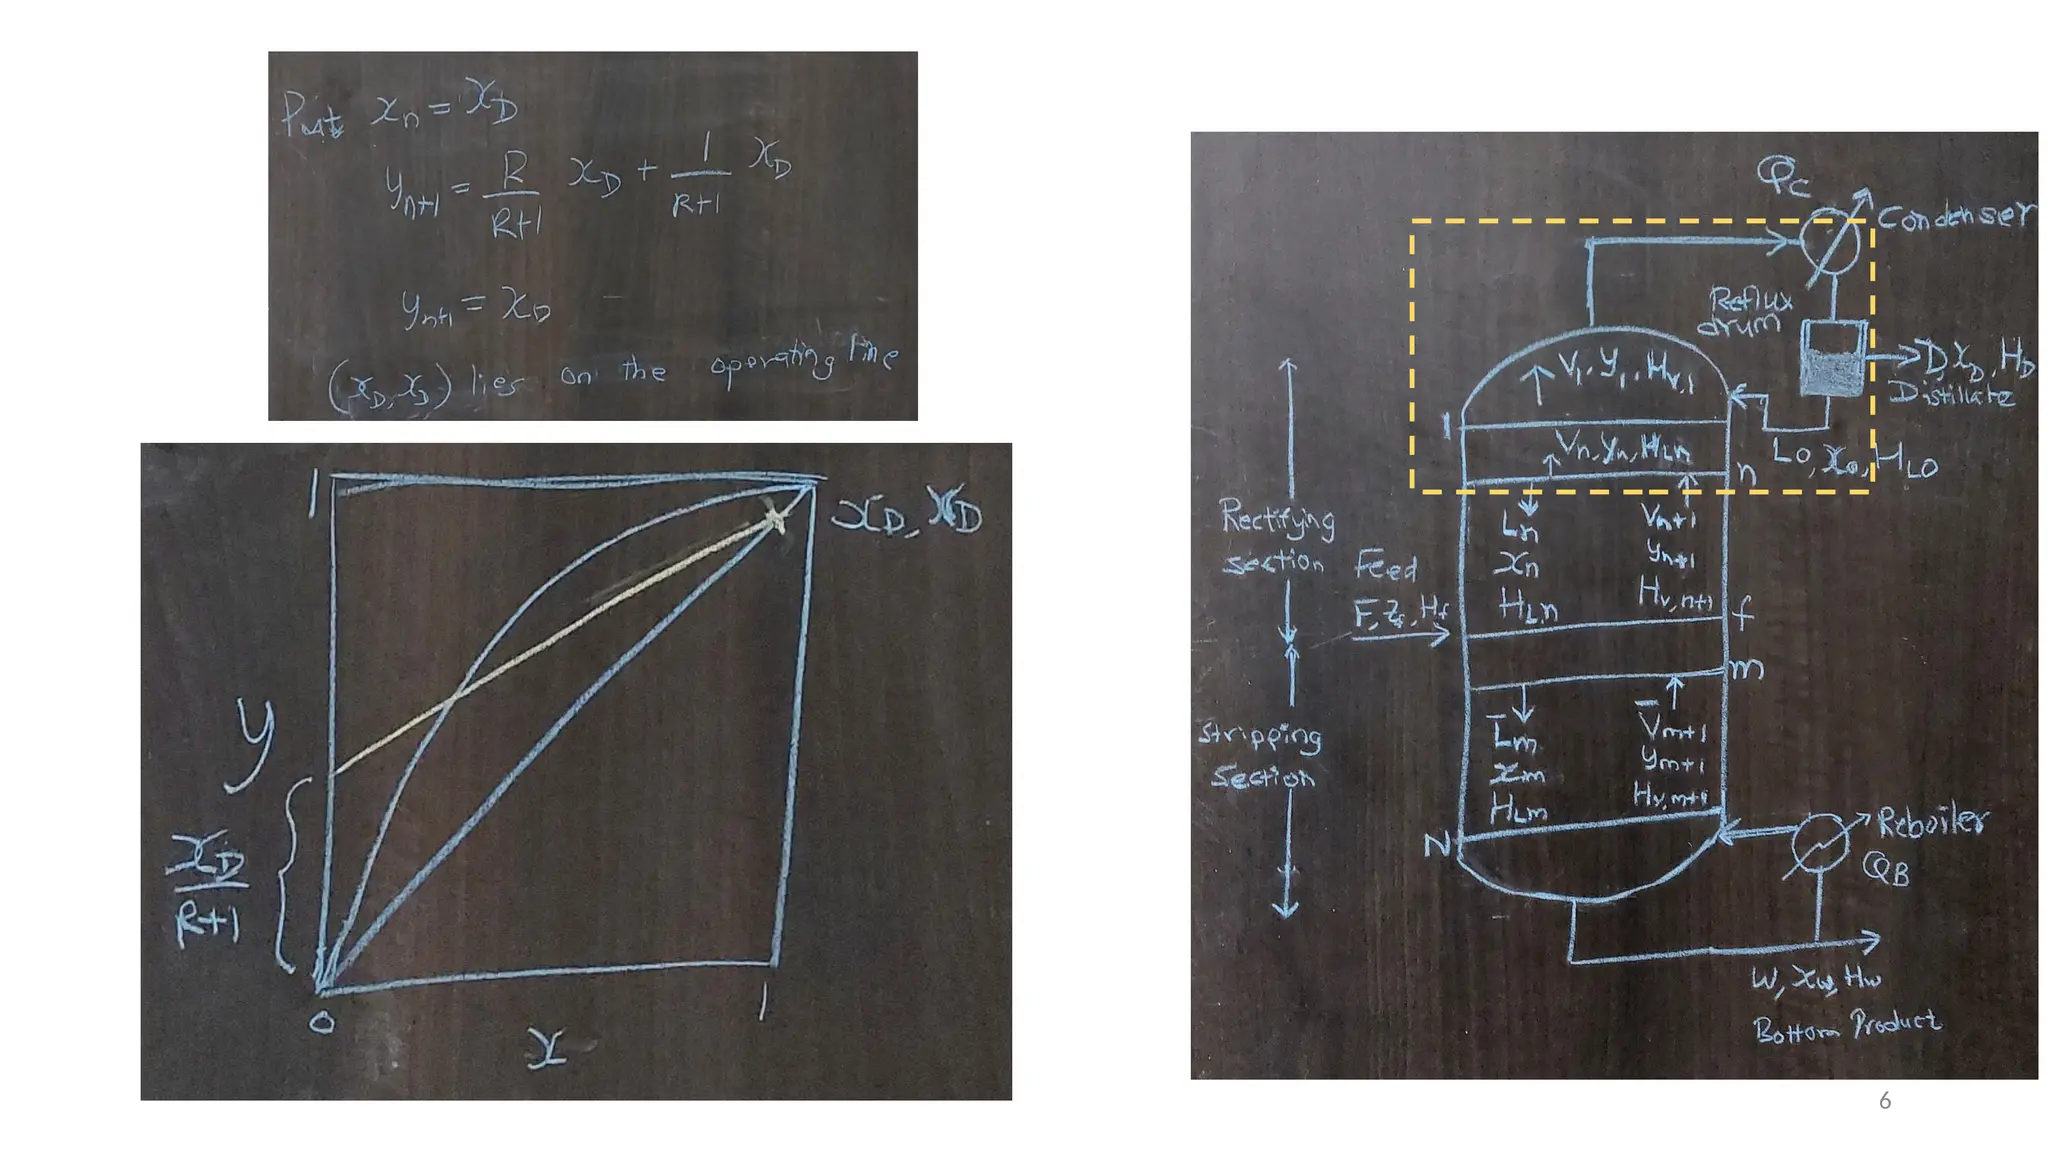 Put x_n = x_D
y_n+1 = R/R+1 x_D + 1/R+1 x_D
y_n+1 = x_D
(x_D, x_D) lies on the operating line
1
x_D, x_D
y
x_D/R+1
0
1
x
Q_C
Condenser
Reflux
drum
V_1, y_1, H_V,1
D, x_D, H_D
Distillate
1
V_n, y_n, H_Ln
L_0, x_0, H_L0
n
Rectifying
section
L_n
x_n
H_L,n
V_n+1
y_n+1
H_V,n+1
Feed
F, z_f, H_f
f
m
Stripping
Section
L̅_m
x_m
H_Lm
V̅_m+1
y_m+1
H_V,m+1
N
Reboiler
Q_B
W, x_W, H_W
Bottom Product
6